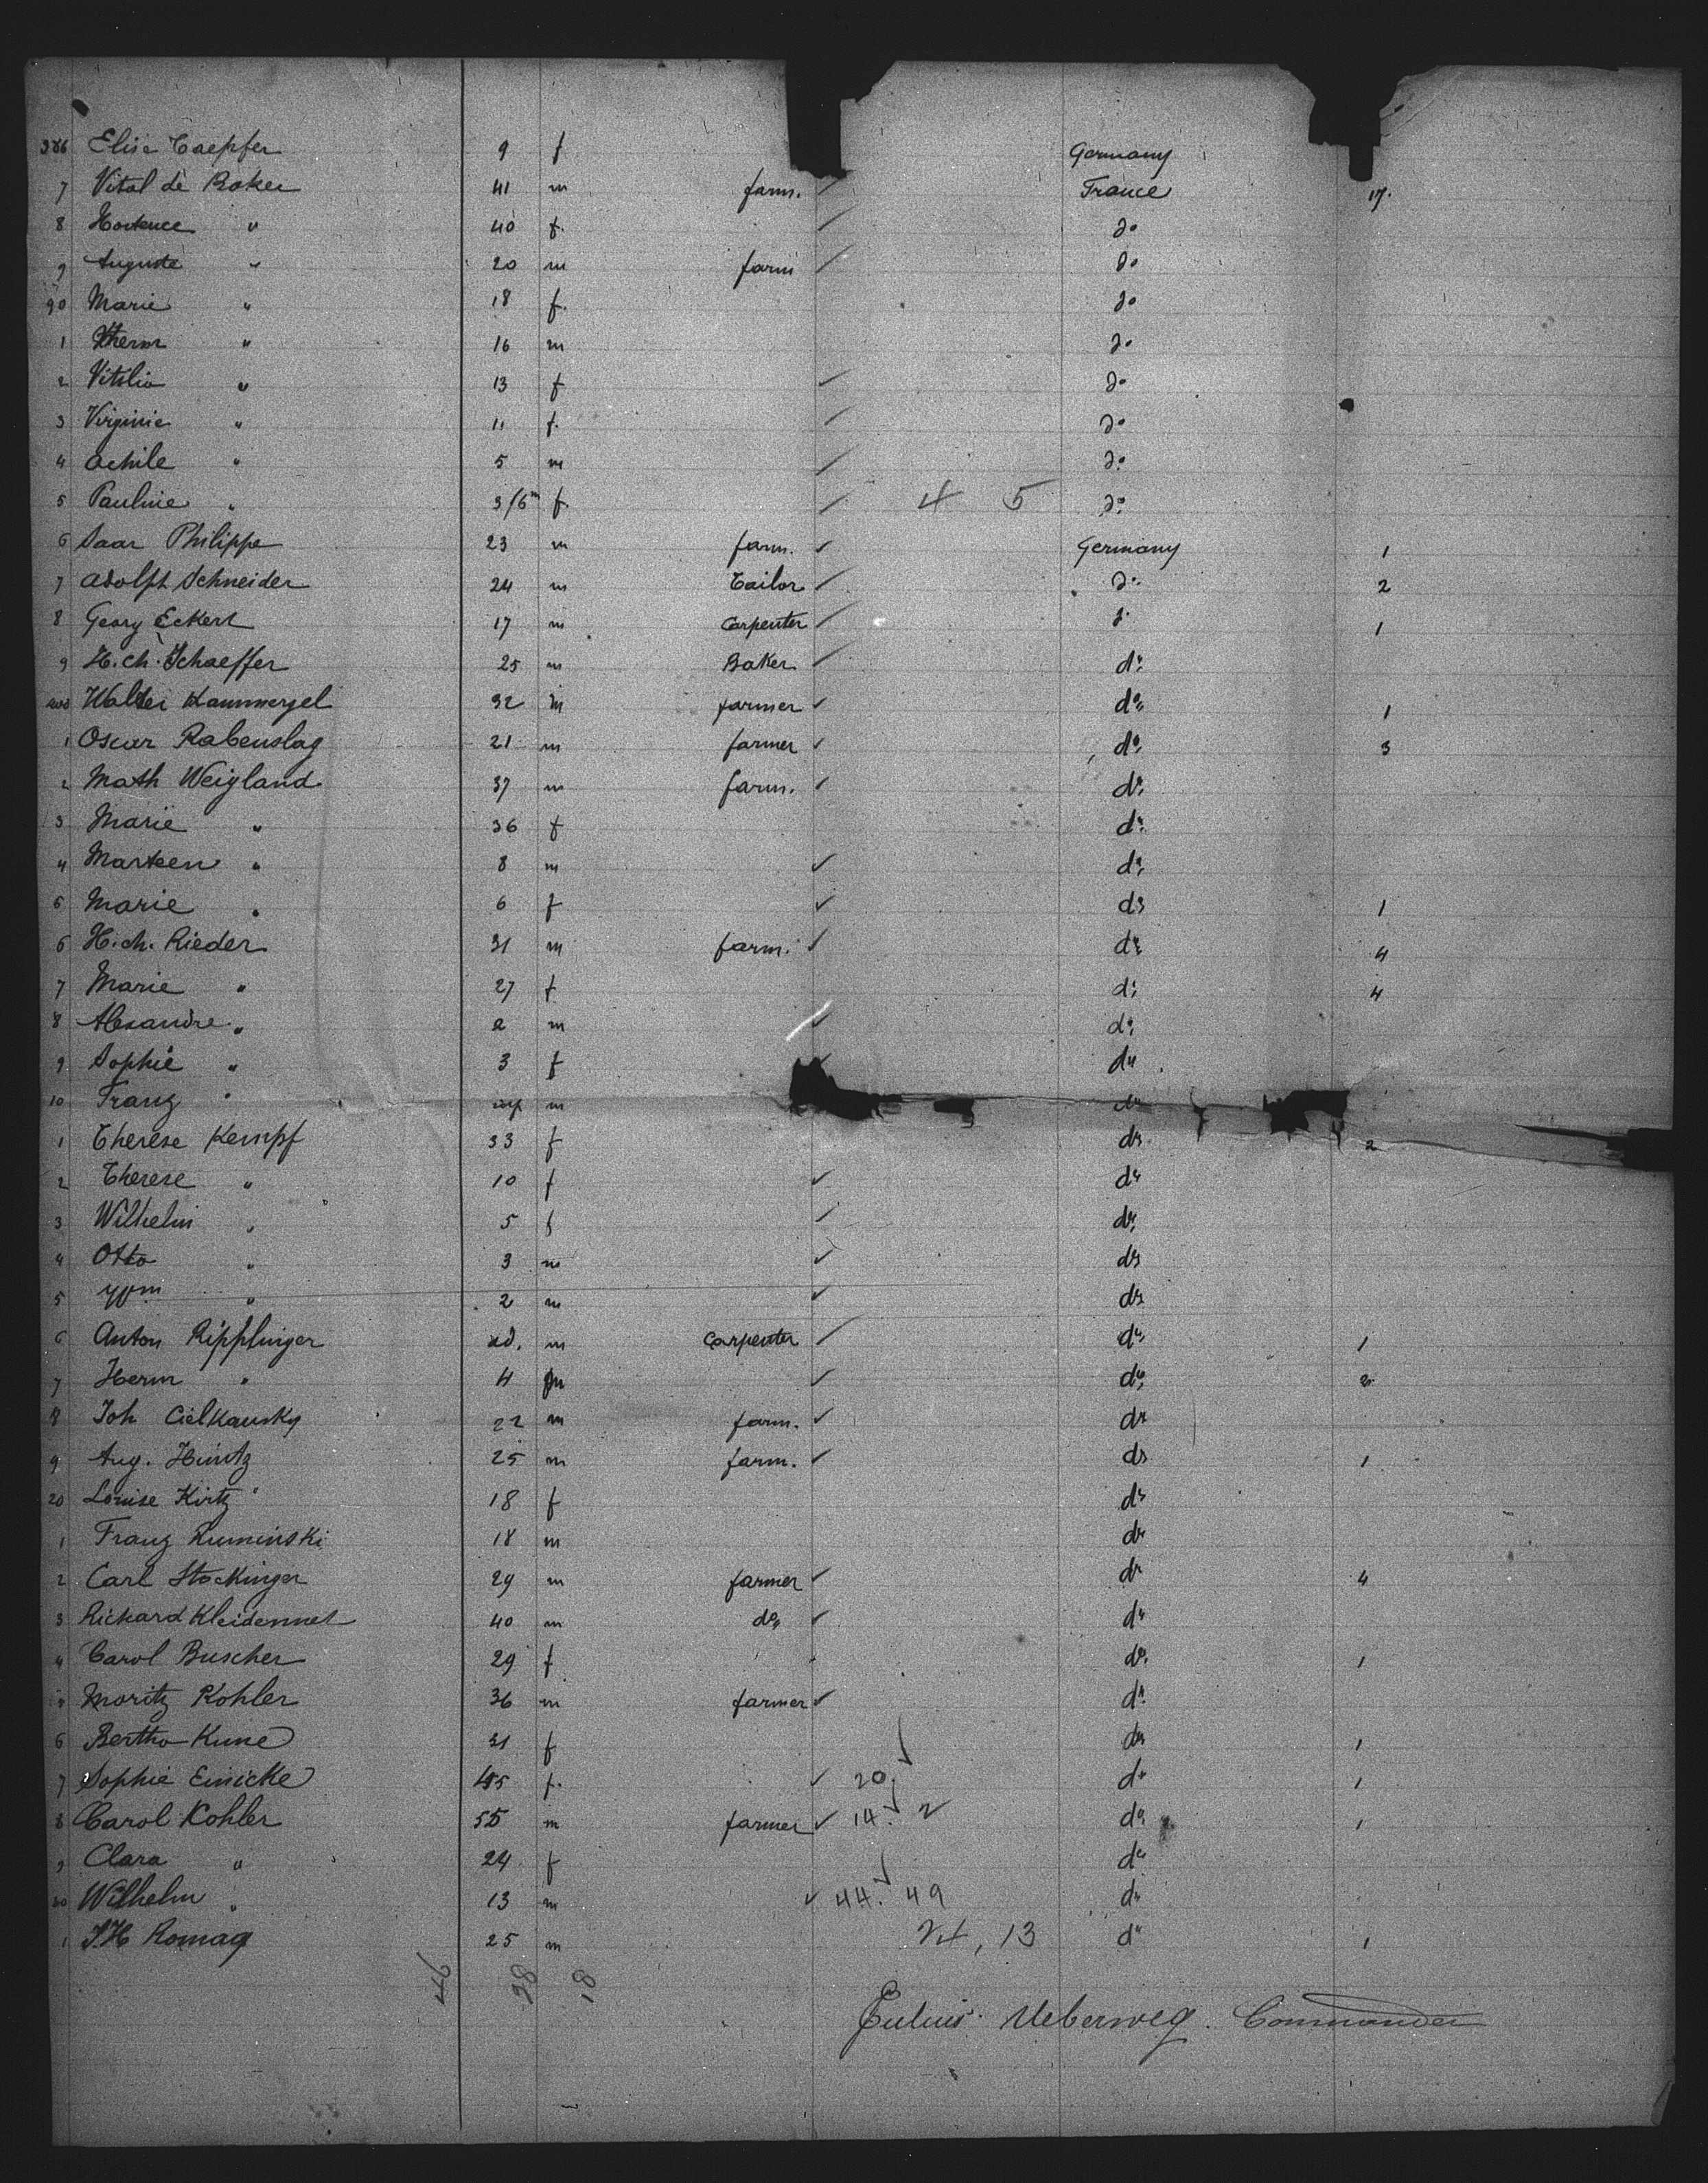 386 Elise Toepfer 9 f Germany
7 Vital de Baker 41 m farm. France 17.
8 Hortence " 40 f. do
9 Auguste " 20 m farm do
90 Marie " 18 f. do
1 " 16 m do
2 Vitalie " 13 f do
3 Virginie " 11 f. do
4 Achile " 5 m do
5 Pauline " 3/6m f. 4 5 do
6 Saar Philippe 23 m farm. Germany 1
7 Adolph Schneider 24 m Tailor do 2
8 Georg Eckert 17 m Carpenter do 1
9 H. ch. Schaeffer 25 m Baker do
400 Walter Kammergel 32 m farmer do 1
1 Oscar Rabenslag 21 m farmer do 3
2 Math Weigland 37 m farm. do
3 Marie " 36 f do
4 Marteen " 8 m do
5 Marie " 6 f do 1
6 H. ch. Rieder 31 m farm. do 4
7 Marie " 27 f do 4
8 Alexandre " 2 m do
9 Sophie " 3 f do
10 Franz " m do
1 Therese Kempf 33 f do 2
2 Therese " 10 f do
3 Wilhelm " 5 f do
4 Otto " 3 m do
5 Wm " 2 m do
6 Anton Ripplinger ad. m Carpenter do 1
7 Herm " 4 m do 2
8 Joh Cielkausky 22 m farm. do
9 Aug. Huintz 25 m farm. do 1
20 Louise Kirtz 18 f do
1 Franz Ruminski 18 m do
2 Carl Stockinger 29 m farmer do 4
3 Richard Kleidennet 40 m do do
4 Carol Buscher 29 f do 1
Moritz Kohler 36 m farmer do
6 Bertha Kune 31 f do 1
7 Sophie Einicke 45 f. 20 do 1
8 Carol Kohler 55 m farmer 14. 2 do 1
9 Clara " 24 f do
30 Wilhelm " 13 m 44. 49 do
1 J.H Romag 25 m 24, 13 do 1
46 28 18
Julius Ueberweg. Commander